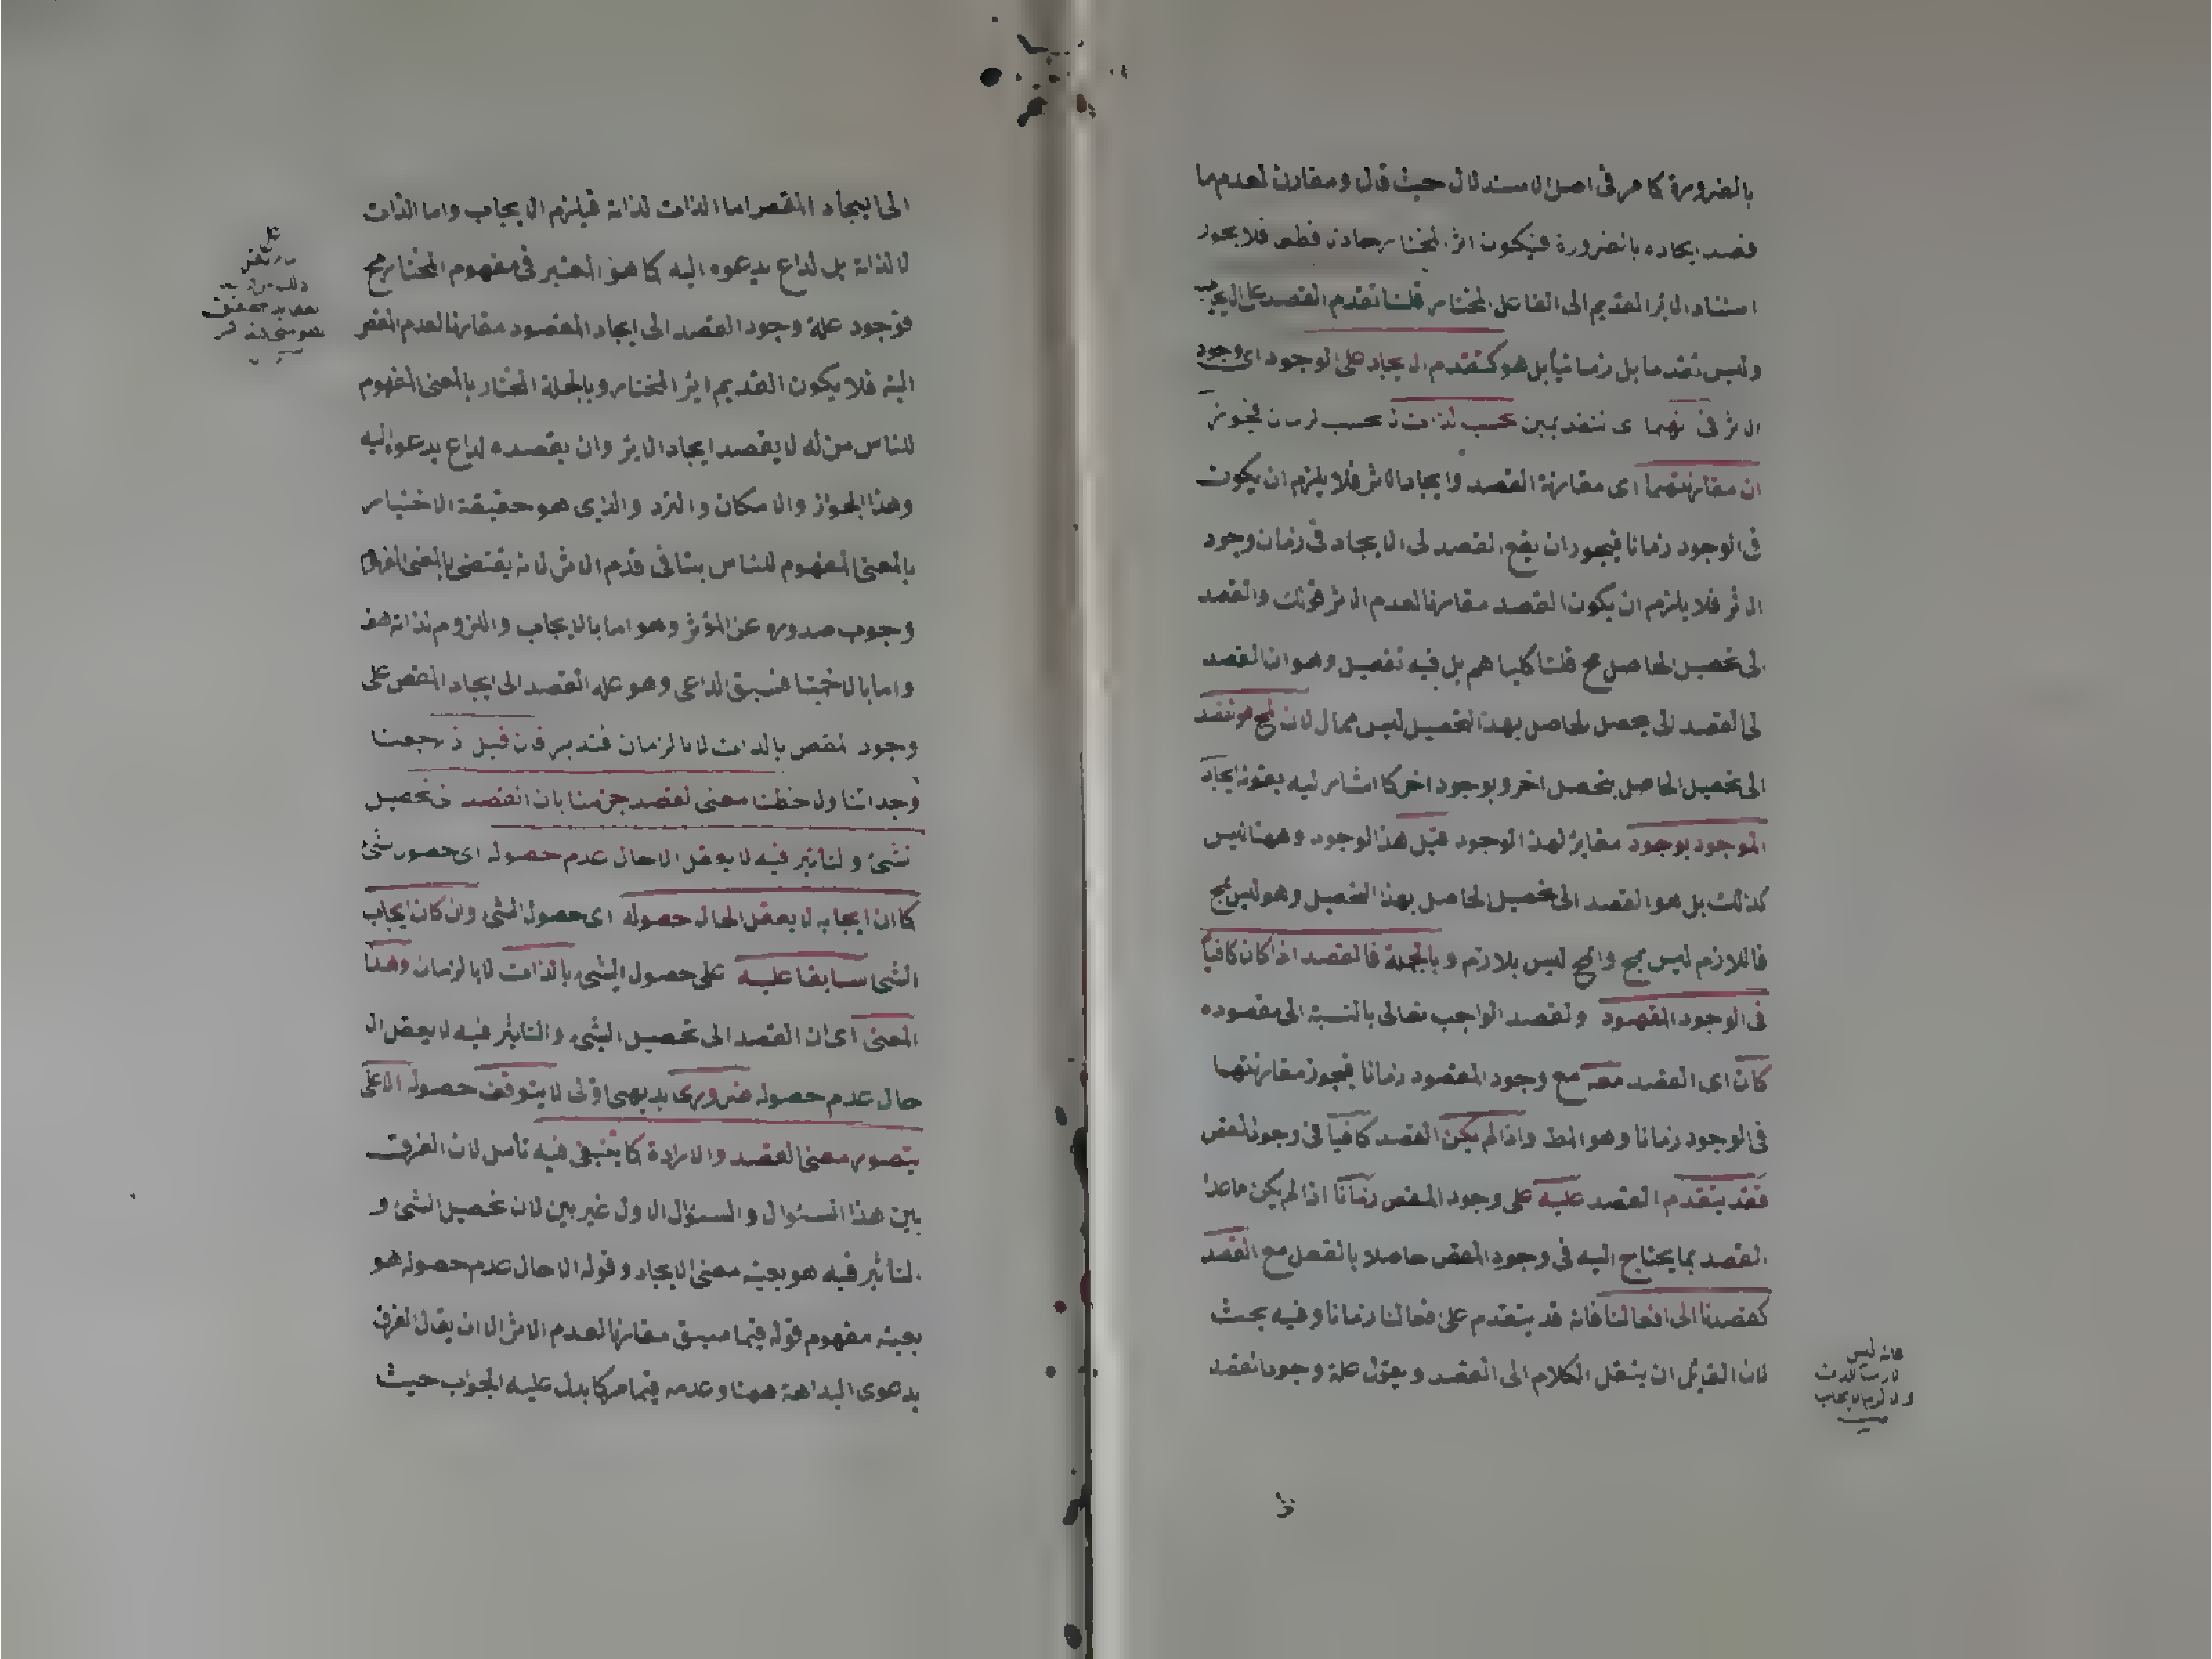 بالضرورة كما مر فى اصل الاستدلال حيث قال ومقارن لعدم ما
قصد ايجاده بالضرورة فيكون اثر المختار حادثا قطعا فلا يجوز
استناد الاثر القديم الى الفاعل المختار قلنا تقدم القصد على الايجاب
وليس تقدما بل زمانيا بل هو كتقدم الايجاد على الوجود اى وجود
الاثر فى انهما اى التقدمين بحسب الذات لا بحسب الزمان فيجوز
ان مقارنتهما اى مقارنة القصد وايجاد الاثر فلا يلزم ان يكون
فى الوجود زمانا فيجوز ان يقع القصد الى الايجاد فى زمان وجود
الاثر فلا يلزم ان يكون القصد مقارنا لعدم الاثر قولك والقصد
الى تحصيل الحاصل مح قلنا كليا هم بل فيه تفصيل وهو ان القصد
الى القصد الى تحصل الحاصل بهذا التحصيل ليس بمحال لان المح هو القصد
الى تحصيل الحاصل بتحصل اخر وبوجود اخر كما اشار اليه بقوله ايجاد
الموجود بوجود مغاير لهذا الوجود قبل هذا الوجود وههنا ليس
كذلك بل هو القصد الى تحصيل الحاصل بهذا التحصيل وهو ليس بمح
فاللازم ليس بمح والمح ليس بلازم وبالجملة فالقصد اذا كان كافيا
فى الوجود المقصود ولقصد الواجب تعالى بالنسبة الى مقصوده
كان اى القصد معه مع وجود المقصود زمانا فيجوز مقارنتهما
فى الوجود زمانا وهو المط واذا لم يكن القصد كافيا فى وجود المقص
فقد يتقدم القصد عليه على وجود المقص زمانا اذا لم يكن ماعدا
القصد بما يحتاج اليه فى وجود المقص حاصلا بالفعل مع القصد
كقصدنا الى افعالنا فانه قد يتقدم على فعالنا زمانا وفيه بحث
لان القائل ان ينقل الكلام الى القصد ويقول علة وجود القصد
فانه ليس
الى ايجاد المقصر اما الذات لذاته فيلزم الايجاب واما الذات
لا لذاته بل لداع يدعوه اليه كما هو المعتبر فى مفهوم المختار مح
فوجود علة وجود القصد الى ايجاد المقصود مقارنا لعدم المقص
البتة فلا يكون القديم اثر المختار وبالجملة المختار بالمعنى المفهوم
للناس من له لا يقصد ايجاد الاثر وان يقصده لداع يدعوه اليه
وهذا الجواز والامكان والترد والذى هو حقيقة الاختيار
بالمعنى المفهوم للناس ينافى قدم الاثر لانه يقتضى بالمعنى المفهوم
وجوب صدوره عن المؤثر وهو اما بالايجاب واللزوم لذاته هف
واما بالاختيا فسبق الداعى وهو علة القصد الى ايجاد المقص على
وجود المقص بالذات لا بالزمان فتدبر فان قيل اذا رجعنا
وجداننا ولاحظنا معنى القصد جزمنا بان القصد الى تحصيل
الشئ والتاثير فيه لا يعقل الا حال عدم حصوله اى حصور الشئ
كما ان ايجابه لا يعقل الحال حصوله اى حصول الشى وان كان ايجاب
الشى سابقا عليه على حصول الشى بالذات لا بالزمان وهذا
المعنى اى ان القصد الى تحصيل الشى والتاثير فيه لا يعقل الا
حال عدم حصوله ضرورى بديهى اولى لا يتوقف حصوله الا على
يتصور معنى القصد والارادة كما ينبغى فيه تأمل لان الفرق
بين هذا السئوال والسئوال الاول غير بين لان تحصيل الشئ و
التاثير فيه هو بعينه معنى الايجاد وقوله الا حال عدم حصوله هو
بعينه مفهوم قوله فيما سبق مقارنا لعدم الاثر الا ان يقال الفرق
بدعوى البداهة ههنا وعدمه فيما مر كما يدل عليه الجواب حيث